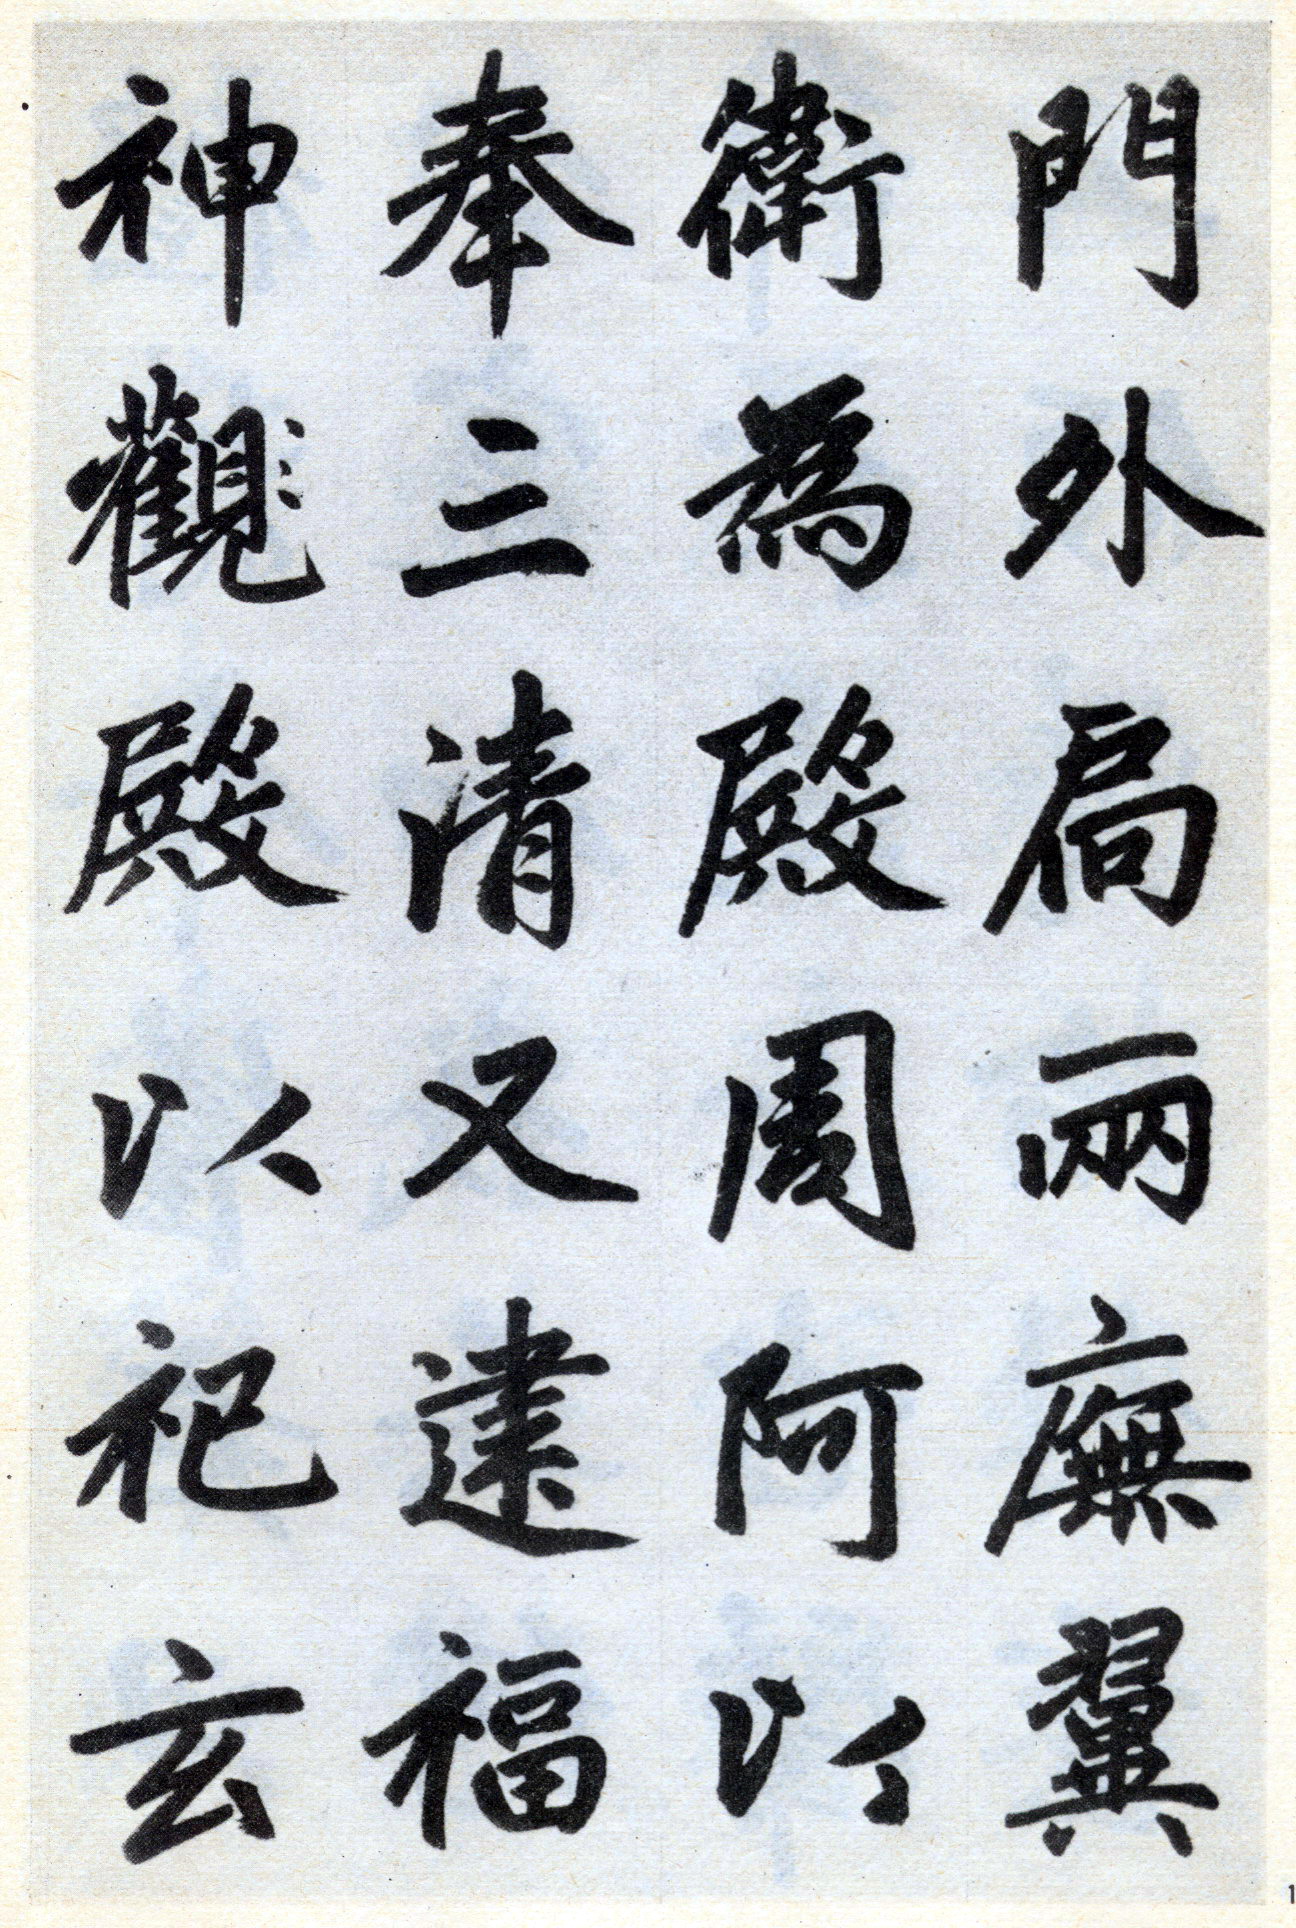 門外扃兩廡翼
衛為殿周阿以
奉三清又建福
神觀殿以祀玄
1